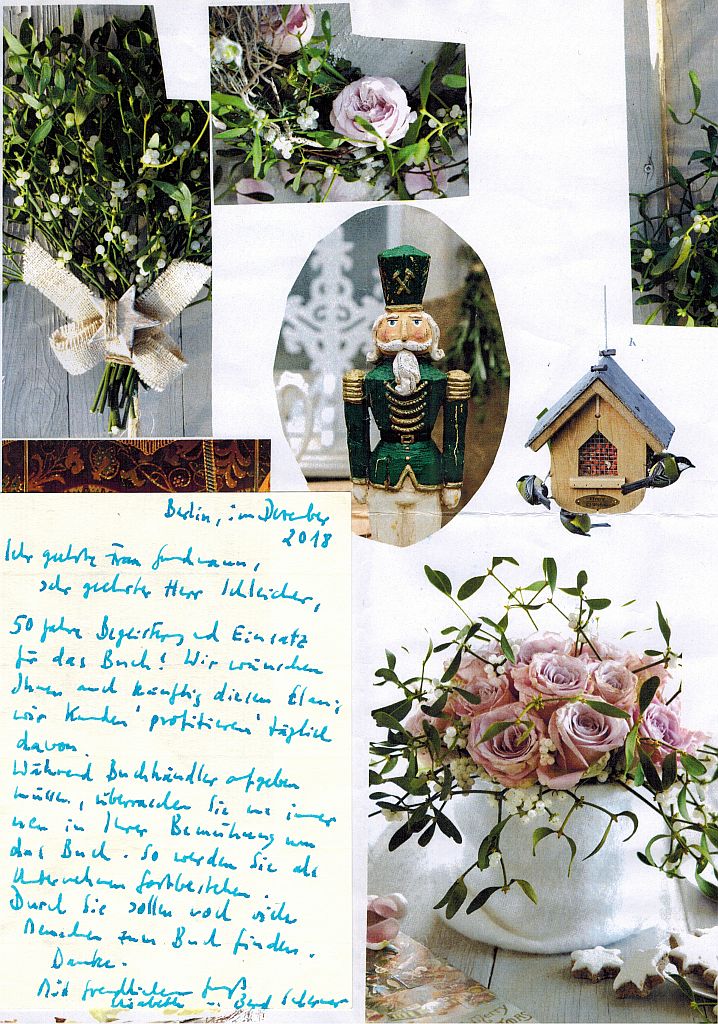 Berlin, im Dezember
2018
Sehr geehrte Frau
sehr geehrter Herr Schleicher,
50 Jahre Begeisterung und Einsatz
für das Buch! Wir wünschen
Ihnen auch künftig diesen Elan;
wir Kunden 'profitieren' täglich
davon.
Während Buchhändler aufgeben
müssen, überraschen Sie uns immer
neu in Ihrer Bemühung um
das Buch. So werden Sie als
Unternehmen fortbestehen.
Durch Sie sollen noch viele
Menschen zum Buch finden.
Danke.
Mit freundlichem Gruß
Elisabeth u. Bernd
K